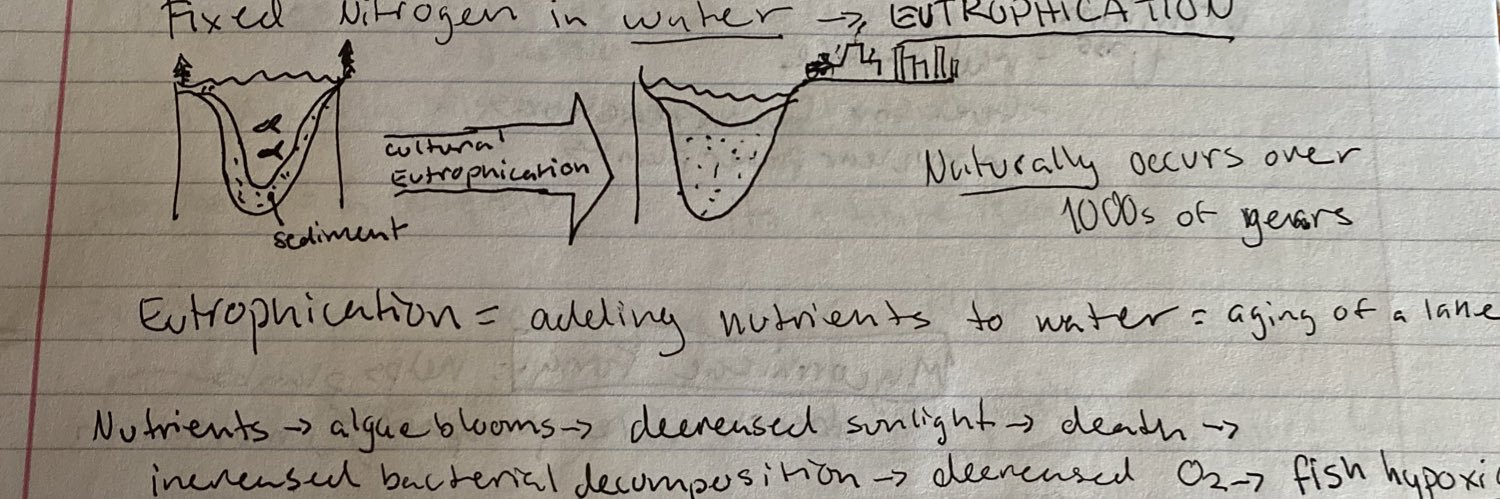 Fixed Nitrogen in water → EUTROPHICATION
cultural
Eutrophication
sediment
Naturally occurs over
1000s of years
Eutrophication = adding nutrients to water = aging of a lake
Nutrients → algae blooms → decreased sunlight → death →
increased bacterial decomposition → decreased O2 → fish hypoxi